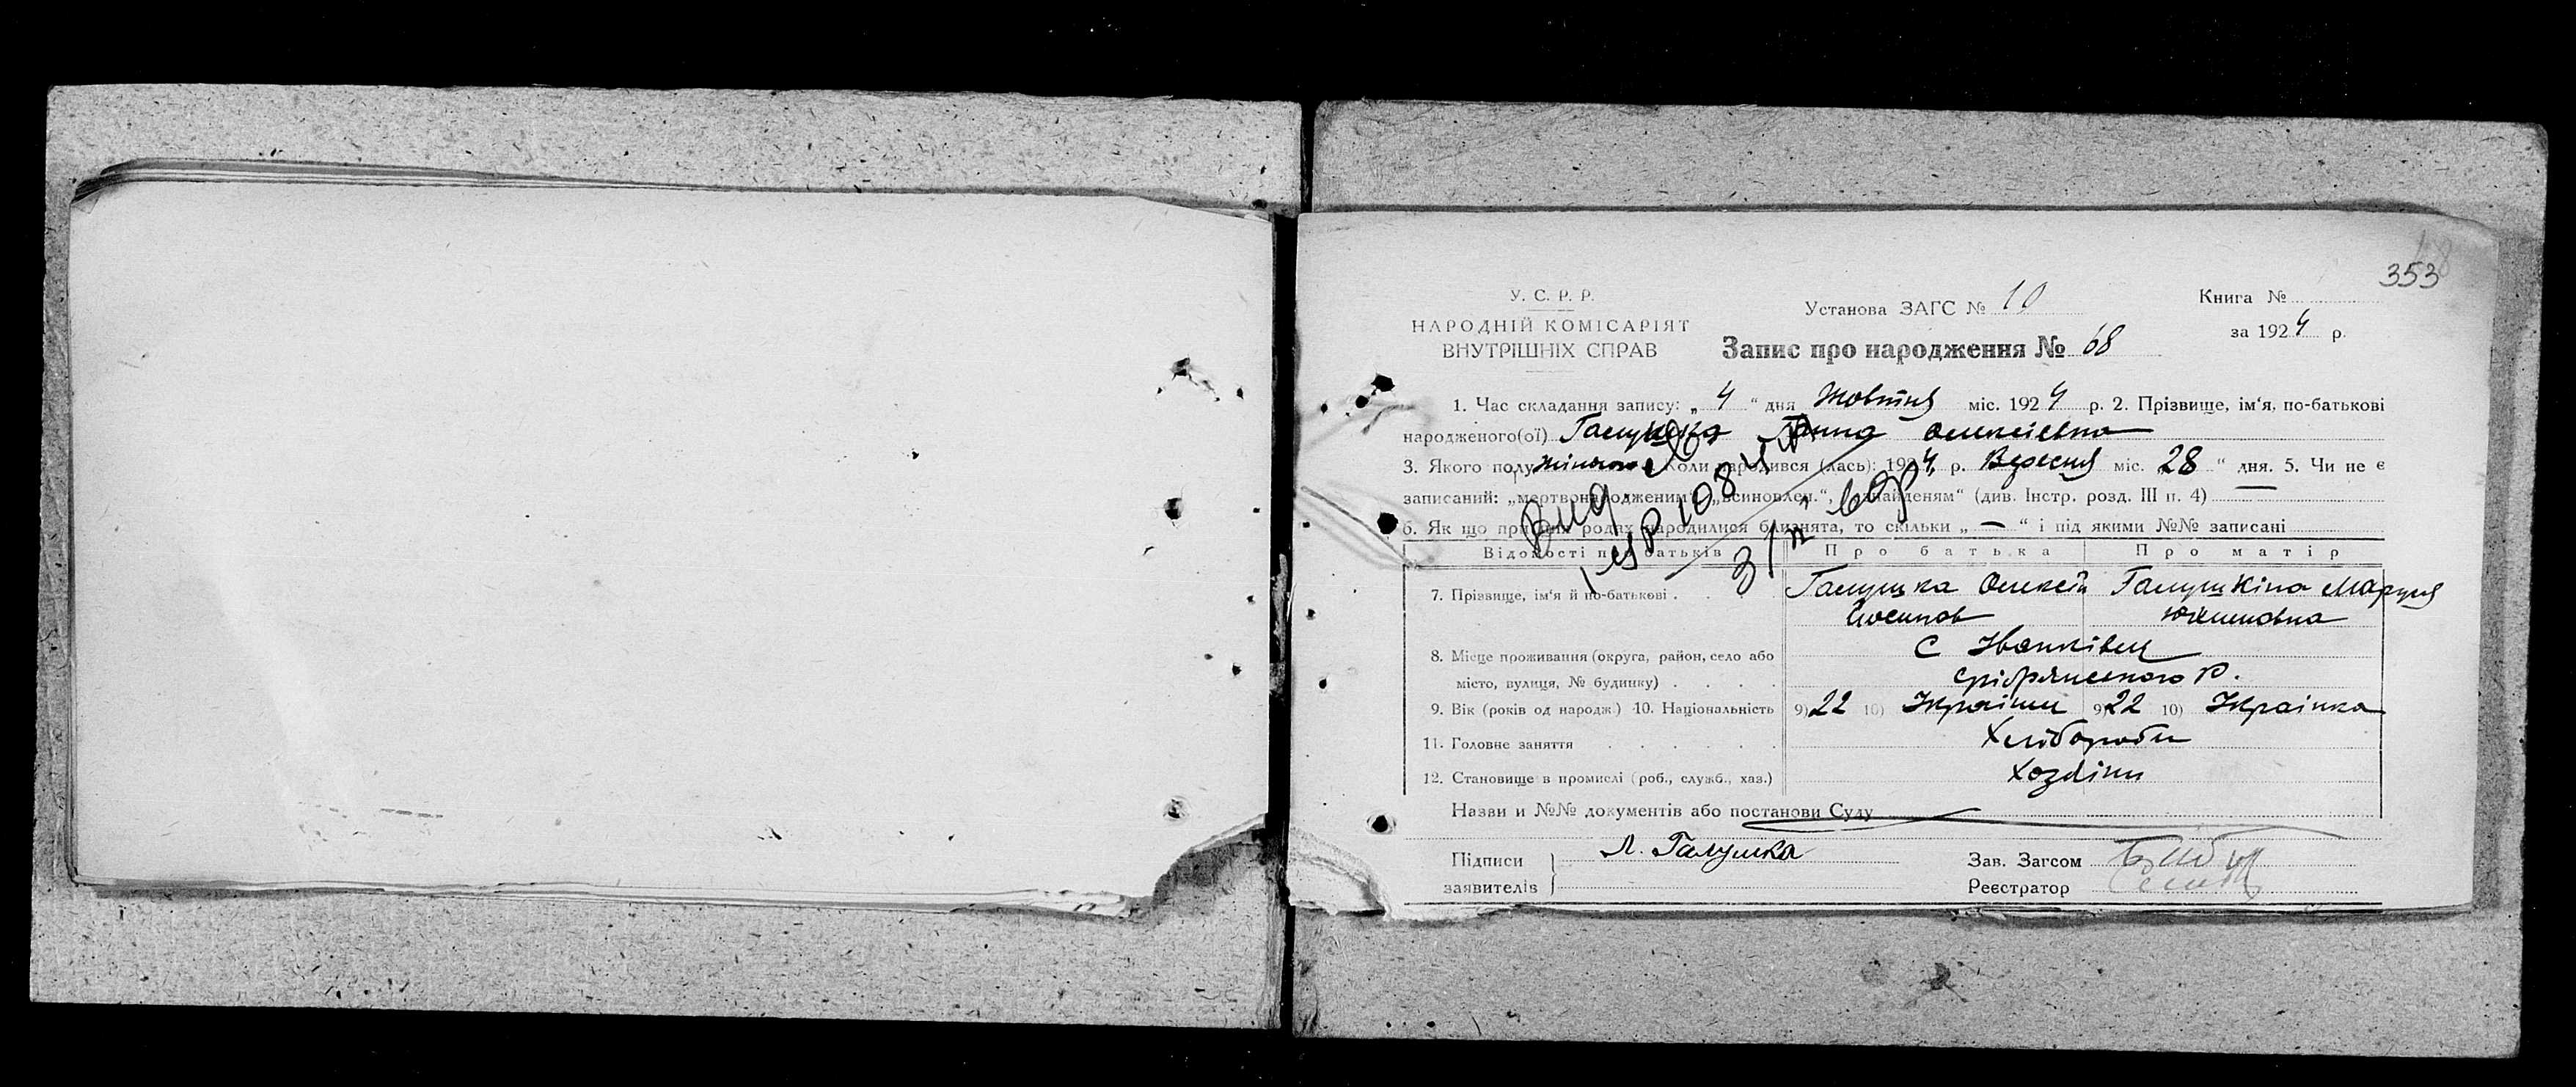 353
У. С. Р. Р.
НАРОДНІЙ КОМІСАРІЯТ
ВНУТРІШНІХ СПРАВ
Установа ЗАГС № 10
Книга №
за 1924 р.
Запис про народження № 68
1. Час складання запису: „ 4 “ дня Жовтня міс. 1924 р. 2. Прізвище, ім‘я, по-батькові
народженого(ої) Галушка Ганна Олексіевна
3. Якого полу жіночого Коли народився (лась): 1924 р. Вересня міс. 28 “ дня. 5. Чи не є
записаний: „мертвонародженим“, „всиновлен.“, „знайденям“ (див. Інстр. розд. III п. 4) —
6. Як що при цих родах народилися близнята, то скільки „ — “ і під якими №№ записані
Відомості про батьків Про батька Про матір
7. Прізвище, ім‘я й по-батькові Галушка Олексій Галушкіна Маруся
Йосипов Юхимовна
8. Місце проживання (округа, район, село або с Іванківец
місто, вулиця, № будинку) Срібрянського Р.
9. Вік (років од народж.) 10. Національність 9) 22 10) Українец 9) 22 10) Українка
11. Головне заняття Хлібороби
12. Становище в промислі (роб., служб., хаз.) Хозяіни
Назви и №№ документів або постанови Суду
Підписи Л. Галушка Зав. Загсом
заявителів Реєстратор